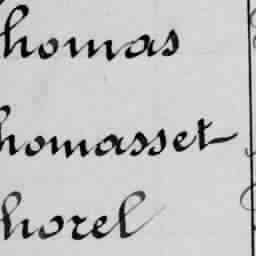 homas
homasset
horel